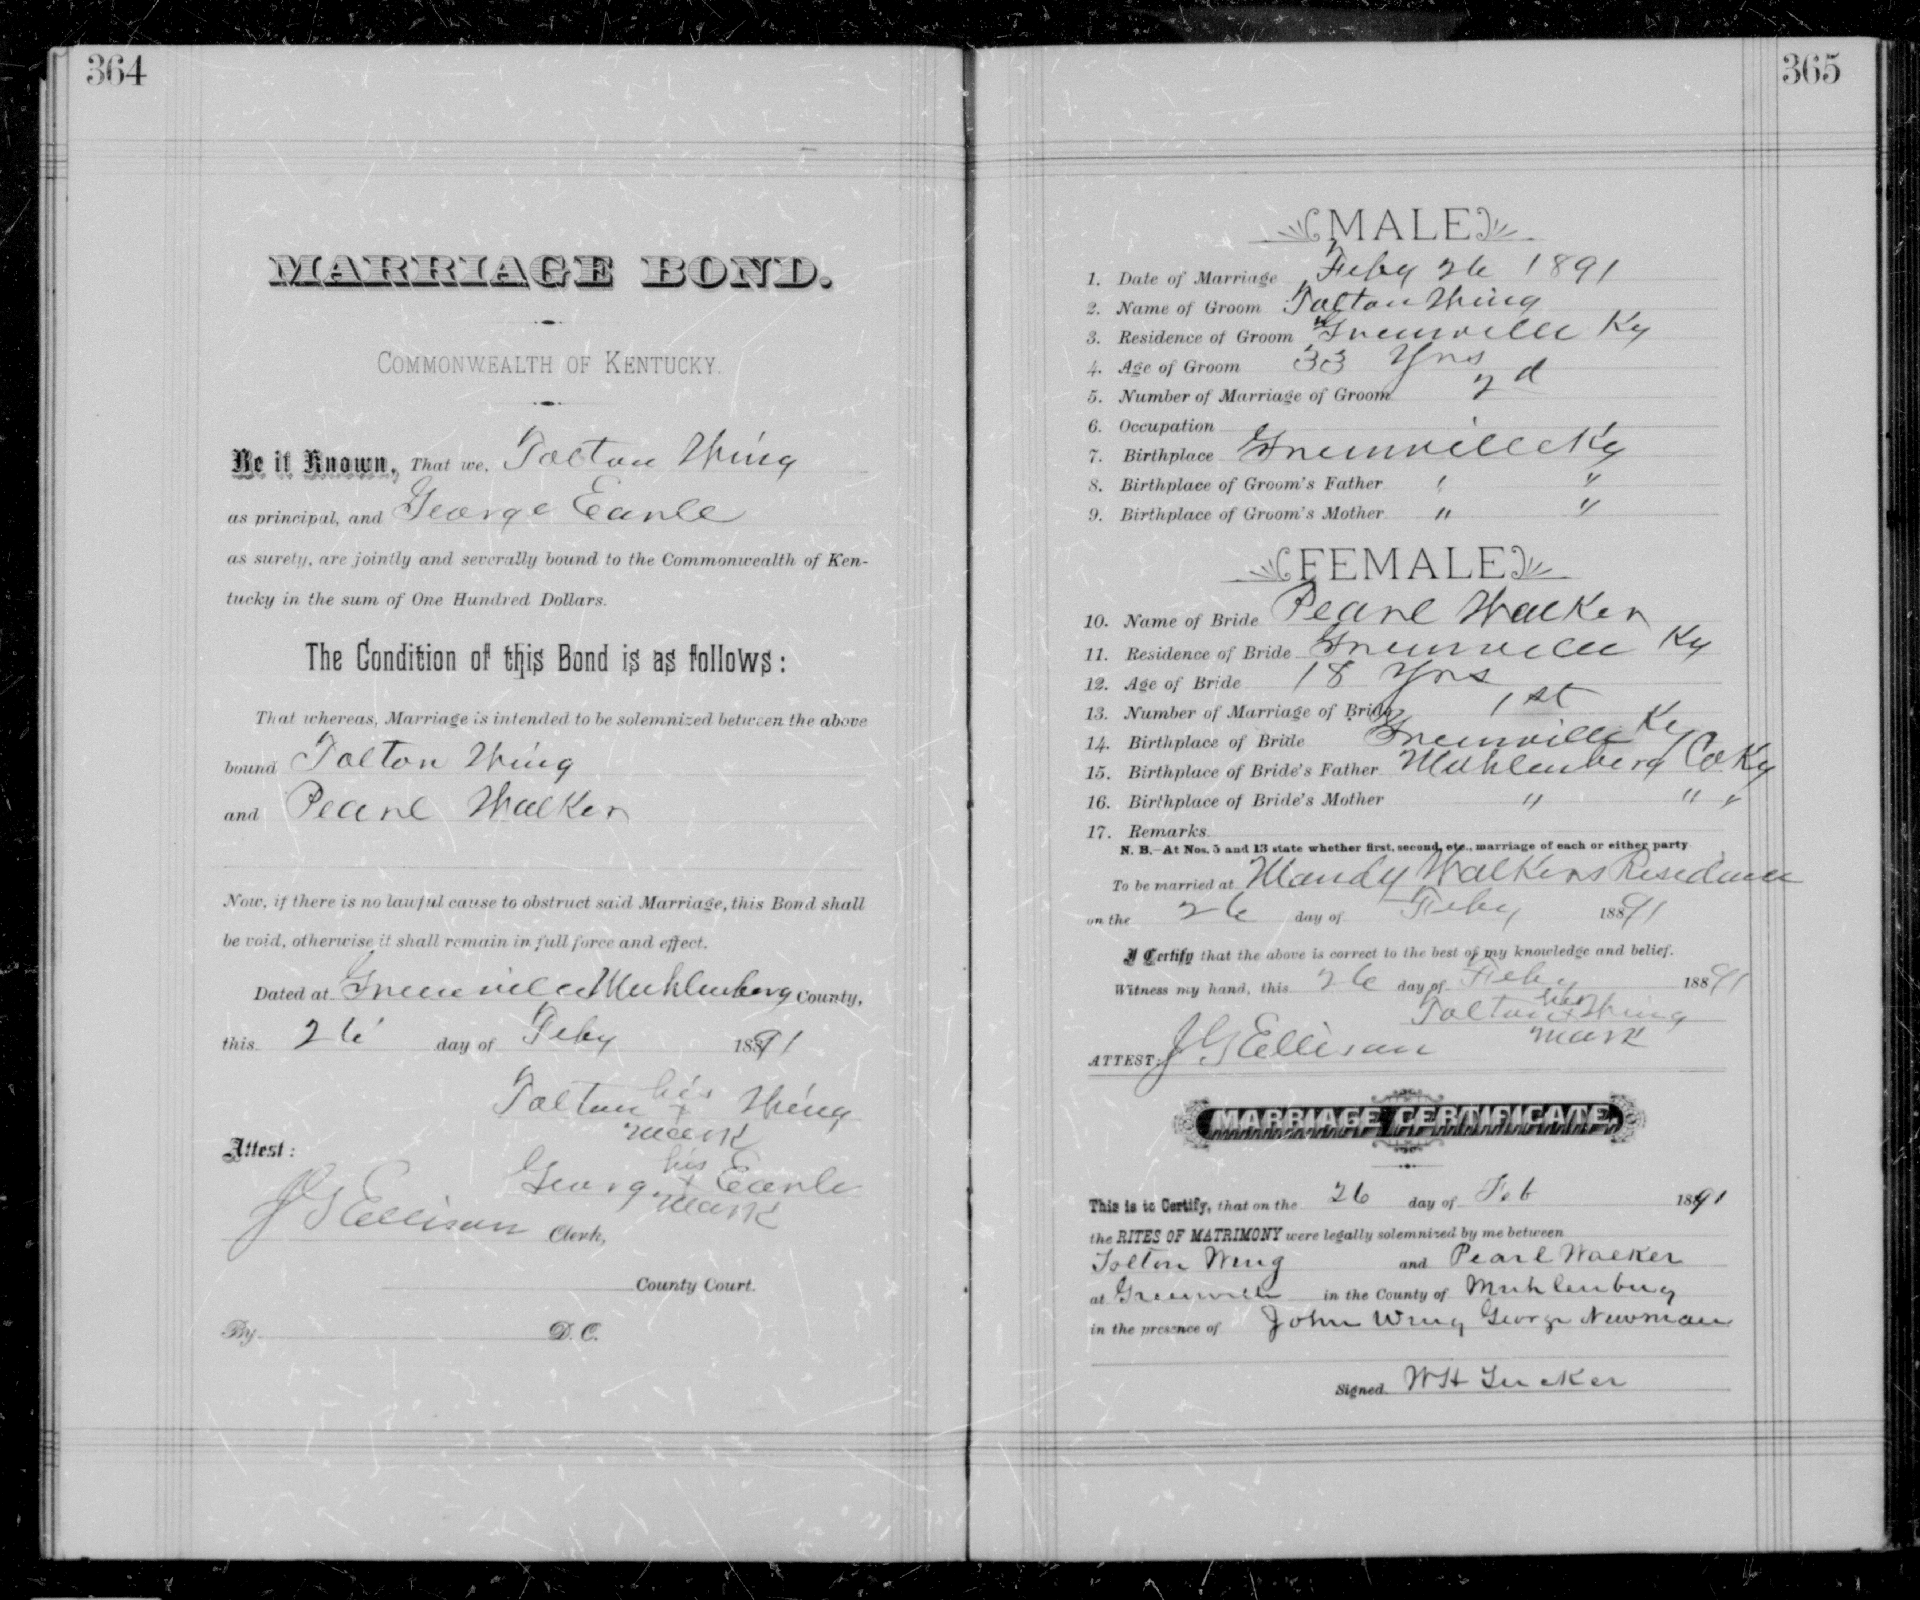 364
MARRIAGE BOND.
COMMONWEALTH OF KENTUCKY.
Be it Known, That we, Tolton Wing
as principal, and George Earle
as surety, are jointly and severally bound to the Commonwealth of Ken-
tucky in the sum of One Hundred Dollars.
The Condition of this Bond is as follows:
That whereas, Marriage is intended to be solemnized between the above
bound Tolton Wing
and Pearl Walker
Now, if there is no lawful cause to obstruct said Marriage, this Bond shall
be void, otherwise it shall remain in full force and effect.
Dated at Greenville Muhlenberg County,
this 26 day of Feby 1891
Tolton his x mark Wing
Attest:
George his x mark Earle
J G Ellison Clerk,
County Court.
By D. C.
365
MALE
1. Date of Marriage Feby 26 1891
2. Name of Groom Tolton Wing
3. Residence of Groom Greenville Ky
4. Age of Groom 33 Yrs
5. Number of Marriage of Groom 2d
6. Occupation
7. Birthplace Greenville Ky
8. Birthplace of Groom's Father " "
9. Birthplace of Groom's Mother " "
FEMALE
10. Name of Bride Pearl Walker
11. Residence of Bride Greenville Ky
12. Age of Bride 18 Yrs
13. Number of Marriage of Bride 1st
14. Birthplace of Bride Greenville Ky
15. Birthplace of Bride's Father Muhlenberg Co Ky
16. Birthplace of Bride's Mother " " "
17. Remarks
N. B.—At Nos. 5 and 13 state whether first, second, etc., marriage of each or either party
To be married at Mandy Walkers Residence
on the 26 day of Feby 1891
I Certify that the above is correct to the best of my knowledge and belief.
Witness my hand, this 26 day of Feby 1891
Tolton his x mark Wing
ATTEST: J G Ellison
MARRIAGE CERTIFICATE.
This is to Certify, that on the 26 day of Feb 1891
the RITES OF MATRIMONY were legally solemnized by me between
Tolton Wing and Pearl Walker
at Greenville in the County of Muhlenburg
in the presence of John Wing George Newman
Signed W H Tucker